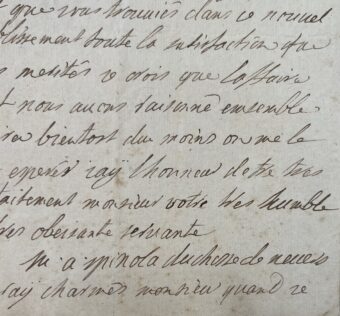 que vous trouviés dans ce nouvel
blissement toute la satisfaction que
s merités je crois que laffaire
t nous avons raisonné ensemble
ira bientost du moins on me le
esperer jay lhonneur detre tres
faitement monsieur votre tres humble
tres obeissante servante
m. a spinola duchesse de nevers
jay charmés monsieur quand je